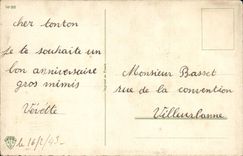 cher tonton
Je te souhaite un
bon anniversaire
gros mimis
Vévette
le 16/2/43
Monsieur Basset
rue de la convention
Villeurbanne